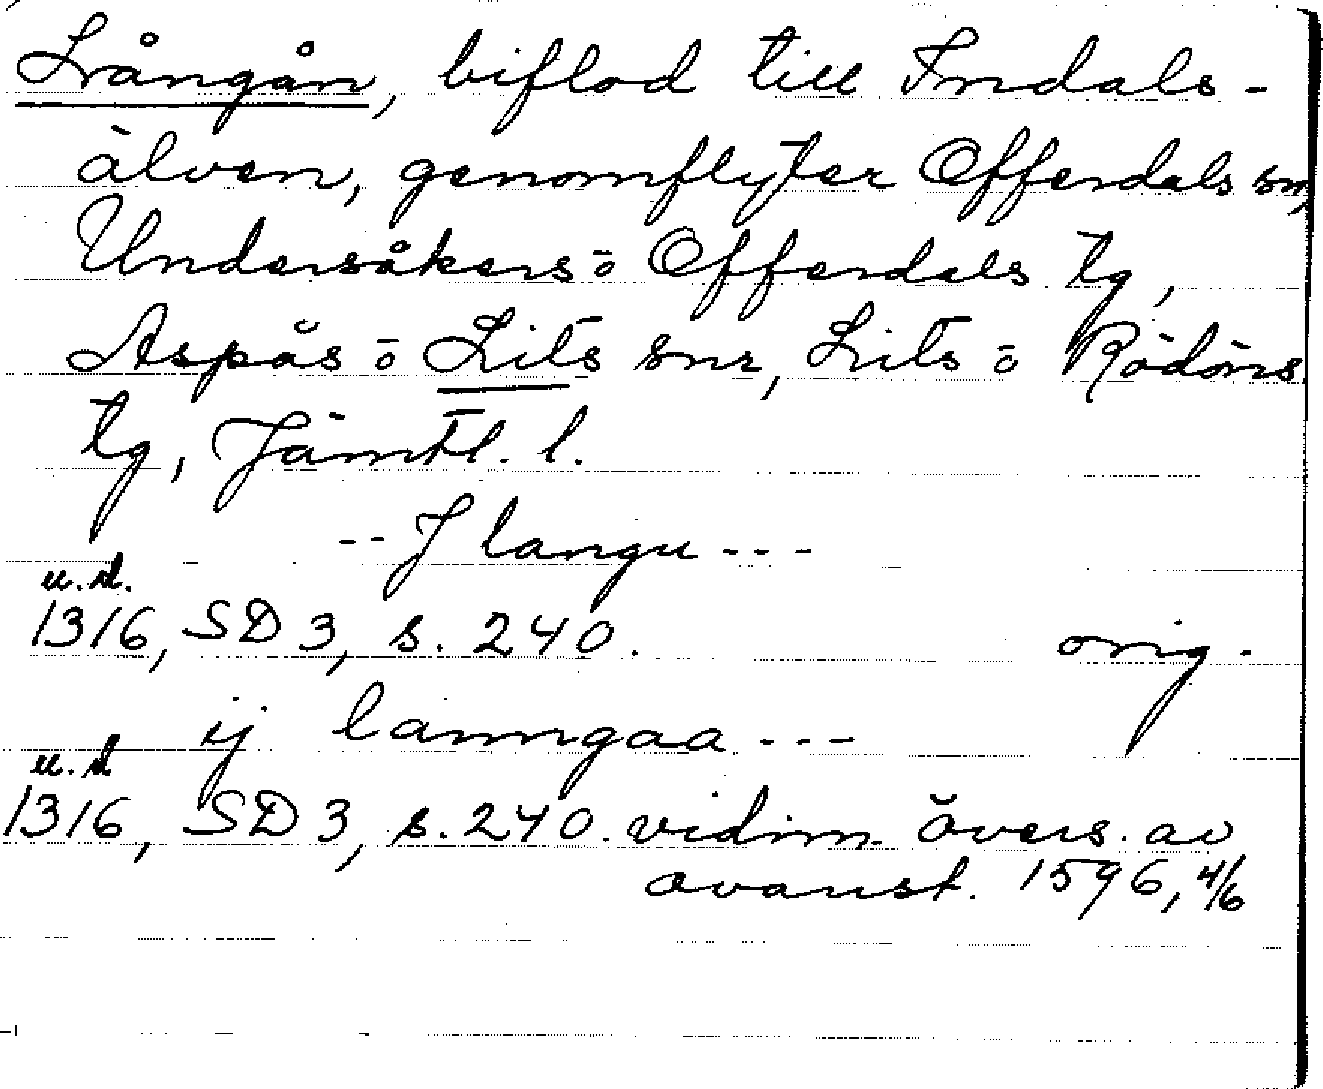 Långån, biflod till Indals-
älven, genomflyter Offerdals sn,
Undersåkers o Offerdals tg,
Aspås o Lits snr, Lits o Rödöns
tg, Jämtl. l.
-- J langu ---
u.d.
1316, SD 3, s. 240. orig.
ij lanngaa ---
u.d
1316, SD 3, s. 240. vidim. övers. av
ovanst. 1596, 4/6